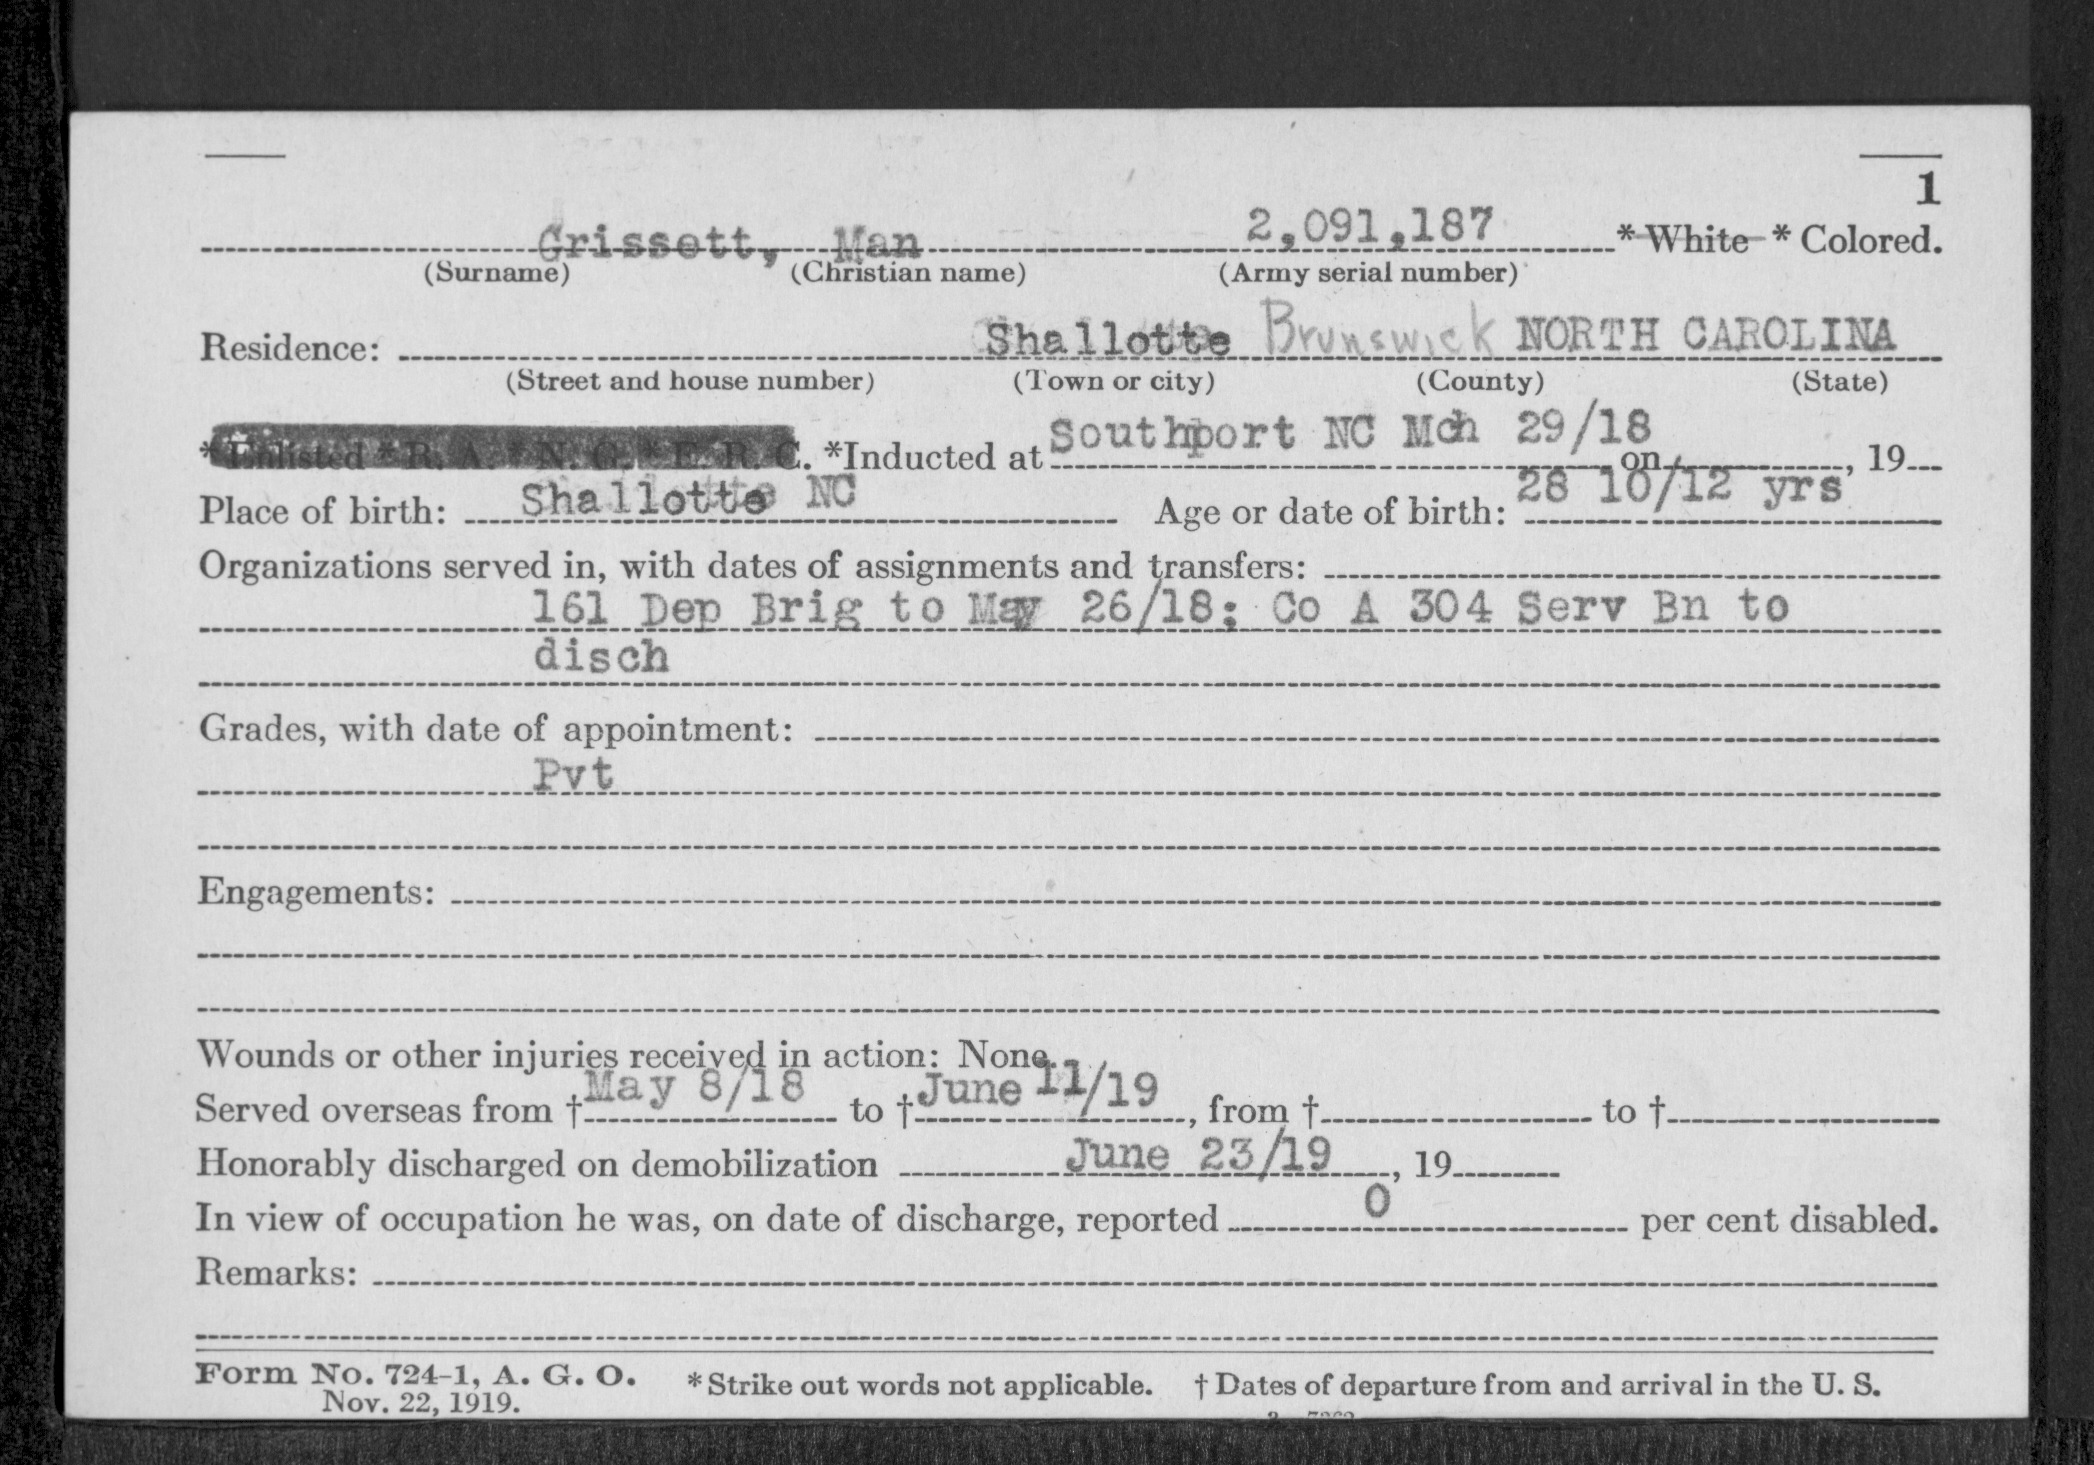 1
Grissett, Man 2,091,187 * White * Colored.
(Surname) (Christian name) (Army serial number)
Residence: Shallotte Brunswick NORTH CAROLINA
(Street and house number) (Town or city) (County) (State)
* Enlisted * R. A. * N. G. * E. R. C. *Inducted at Southport NC Mch 29/18 on , 19
Place of birth: Shallotte NC Age or date of birth: 28 10/12 yrs
Organizations served in, with dates of assignments and transfers:
161 Dep Brig to May 26/18; Co A 304 Serv Bn to
disch
Grades, with date of appointment:
Pvt
Engagements:
Wounds or other injuries received in action: None.
Served overseas from † May 8/18 to † June 11/19, from † to †
Honorably discharged on demobilization June 23/19, 19
In view of occupation he was, on date of discharge, reported 0 per cent disabled.
Remarks:
Form No. 724-1, A. G. O. * Strike out words not applicable. † Dates of departure from and arrival in the U. S.
Nov. 22, 1919.